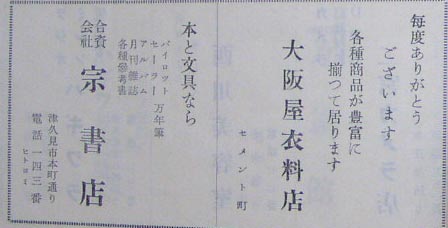 毎度ありがとう
ございます
各種商品が豊富に
揃つて居ります
大阪屋衣料店
セメント町
本と文具なら
パイロット
セーラー
万年筆
アルバム
月刊雑誌
各種参考書
合資会社
宗書店
津久見市本町通り
電話一四三番
ヒトヨミ